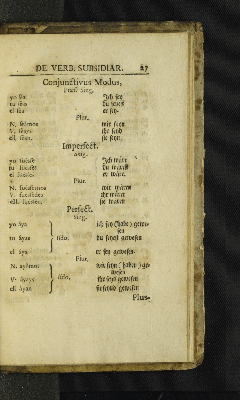 DE VERB. SUBSIDIAR. 27
Conjunctivus Modus,
Præs. Sing.
yo sia Ich sey
tu sias Du seyest
el sia er sey.
Plur.
N. siámos wir seyn
V. siays ihr seyd
ell. sian. sie seyn.
Imperfect.
Sing.
yo fuesse Ich wäre
tu fuesses Du wärest
el fuesse er wäre.
Plur.
N. fuessemos wir wären
V. fuessedes ihr wäret
ell. fuessen. sie wären
Perfect.
Sing.
yo áya ich sey (habe) gewe-
sen
tu áyas sido. du seyst gewesen
el áya er sey gewesen.
Plur.
N. ayámos wir seyn (haben) ge-
wesen
V. áyays sido. Ihr seyd gewesen
ell áyan sie seynd gewesen
Plus-